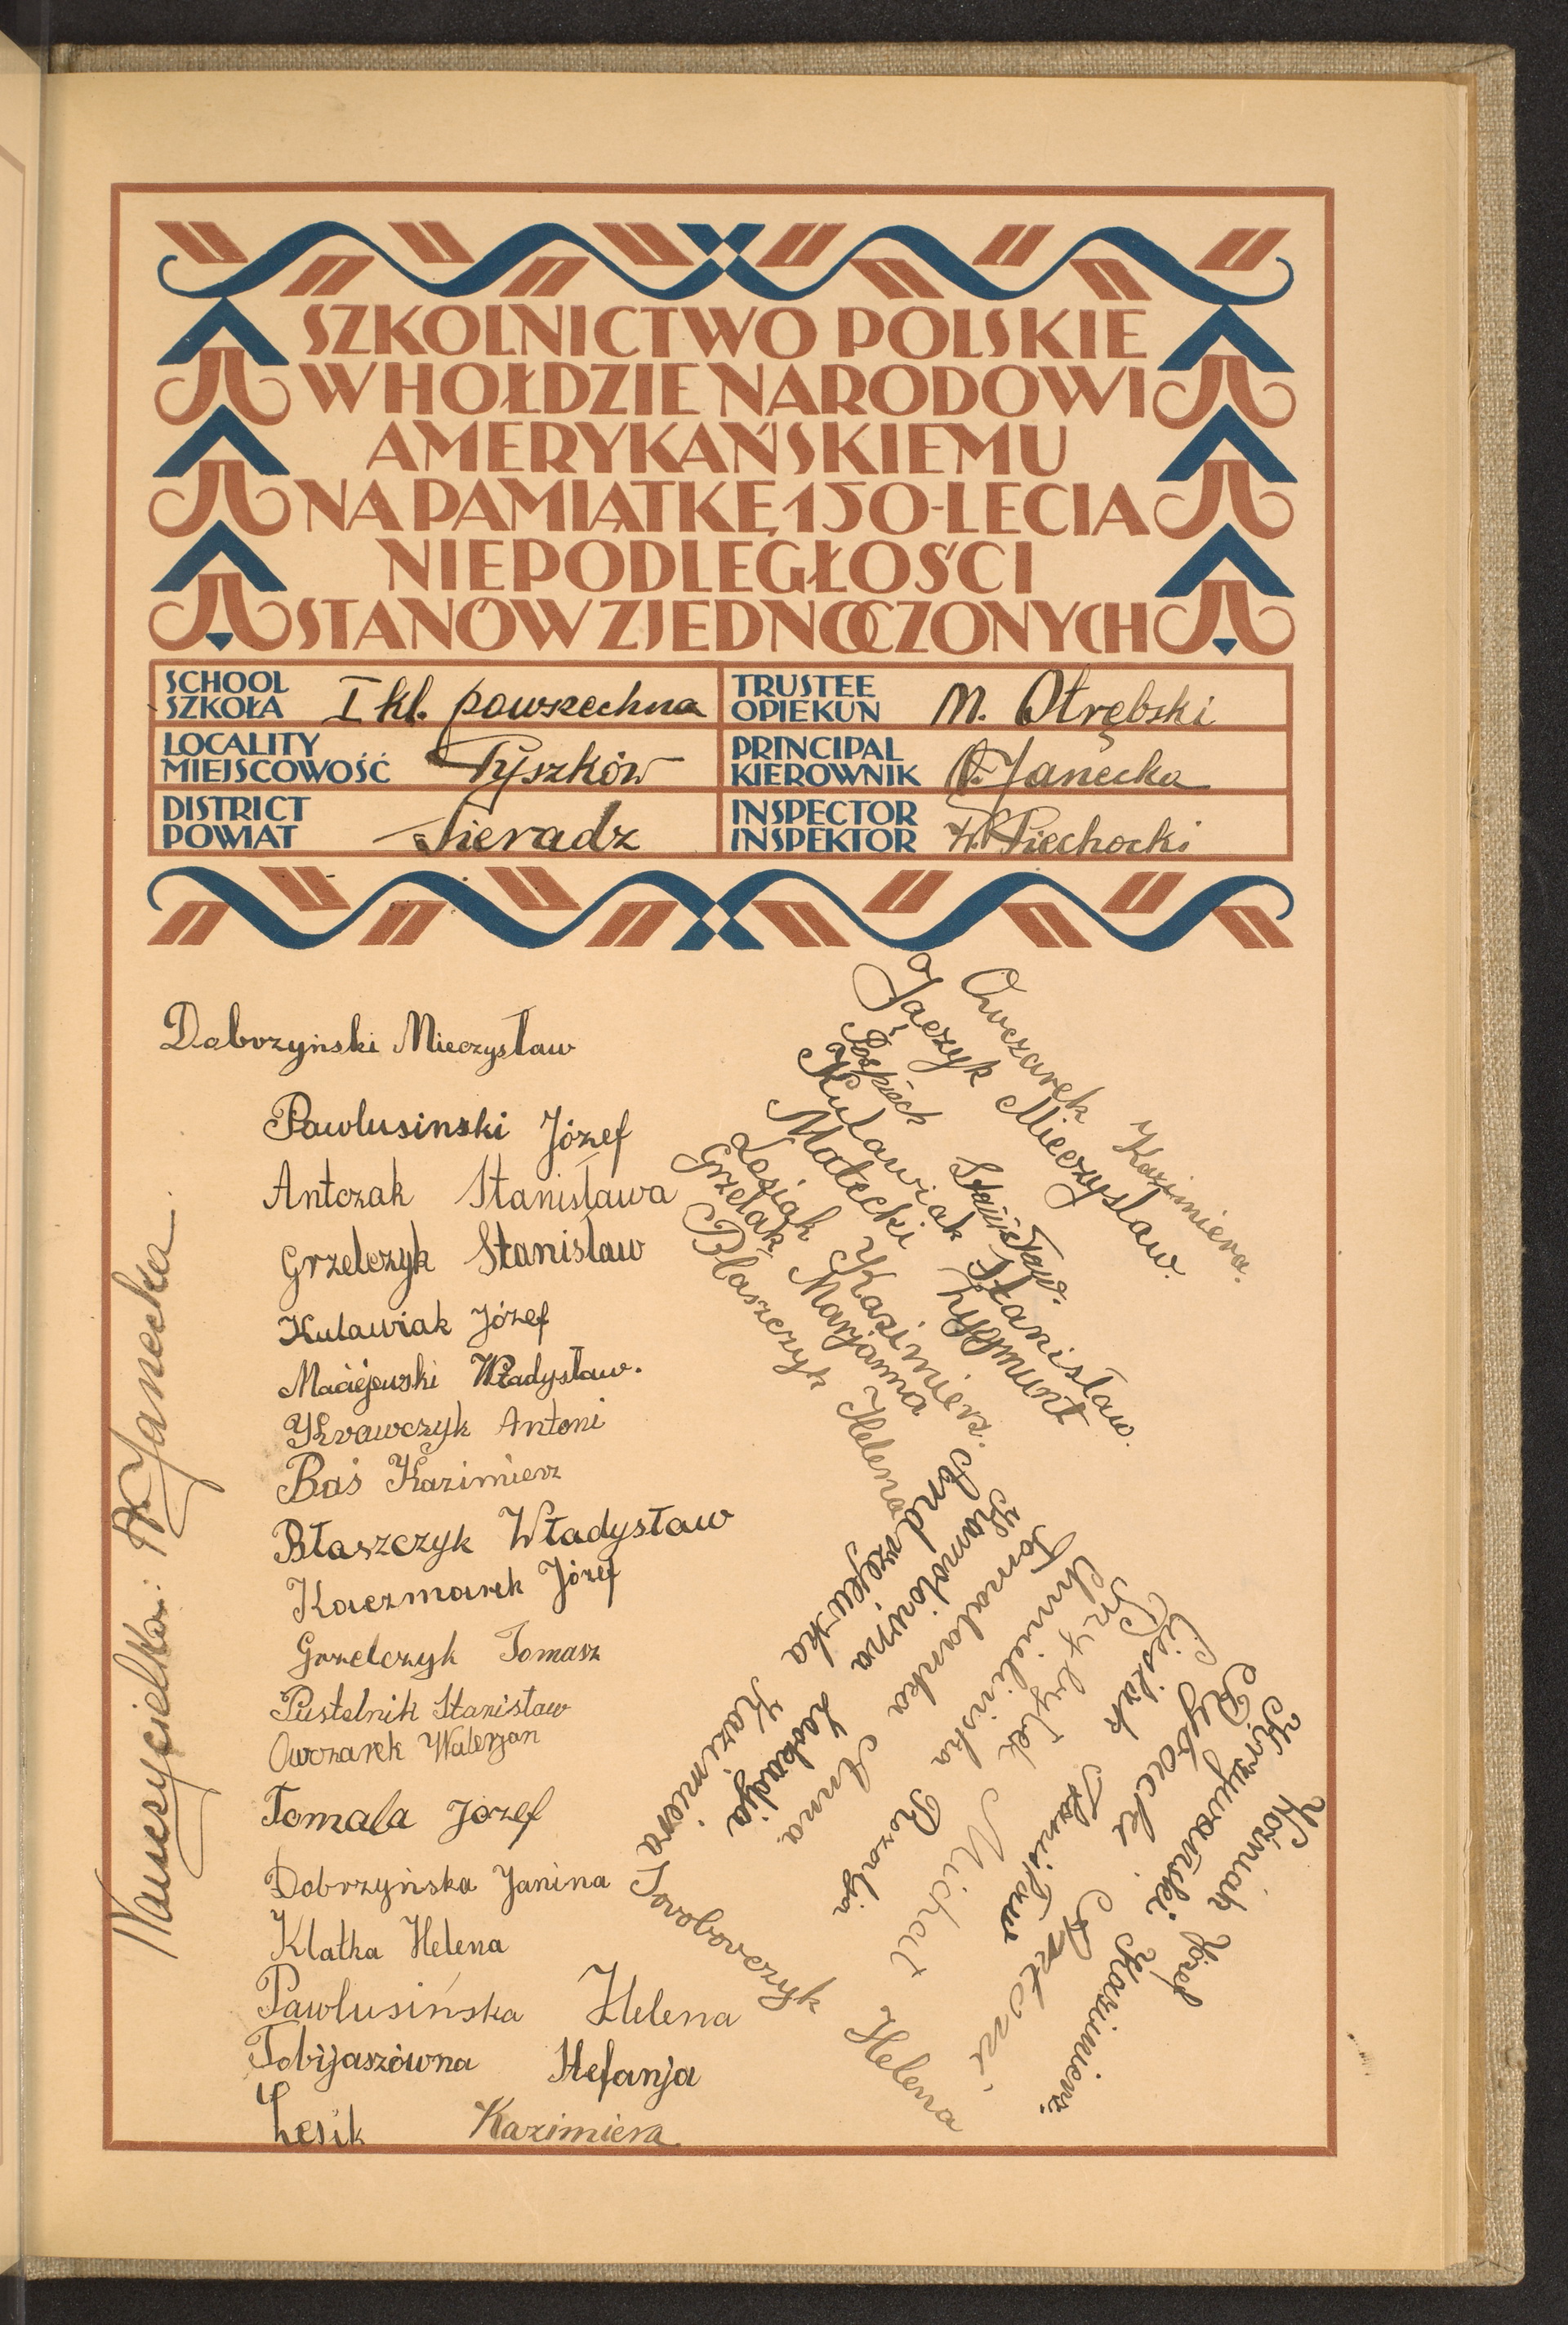 SZKOLNICTWO POLSKIE
W HOŁDZIE NARODOWI
AMERYKAŃSKIEMU
NA PAMIĄTKĘ 150-LECIA
NIEPODLEGŁOŚCI
STANÓW ZJEDNOCZONYCH
SCHOOL
SZKOŁA I kl. powszechna
TRUSTEE
OPIEKUN M. Otrębski
LOCALITY
MIEJSCOWOŚĆ Tyszków
PRINCIPAL
KIEROWNIK A. Janecka
DISTRICT
POWIAT Sieradz
INSPECTOR
INSPEKTOR Piechocki
Dobrzyński Mieczysław
Pawlusinski Józef
Antczak Stanisława
Grzelczyk Stanisław
Kulawiak Józef
Maciejewski Władysław.
Krawczyk Antoni
Baś Kazimierz
Błaszczyk Władysław
Kaczmarek Józef
Grzelczyk Tomasz
Pustelnik Stanisław
Owczarek Walerjan
Tomala Józef
Dobrzyńska Janina
Klatka Helena
Pawlusińska Helena
Tobijaszówna Stefanja
Lesik Kazimiera
Nauczycielka: A. Janecka.
Owczarek Kazimiera.
Jączyk Mieczysław.
Pośpiech Stanisław.
Kulawiak Stanisław.
Małecki Zygmunt
Lesiak Kazimierz.
Grzelak Marjanna
Błaszczyk Helena
Andrzejewska Kazimiera
Leokadja
Tomalanka Anna
Chmielińska Rozalja
Przybyłek Michał
Cieślak Stanisław
Rybacki Antoni
Krzywański Kazimierz.
Woźniak Józef
Toroborczyk Helena